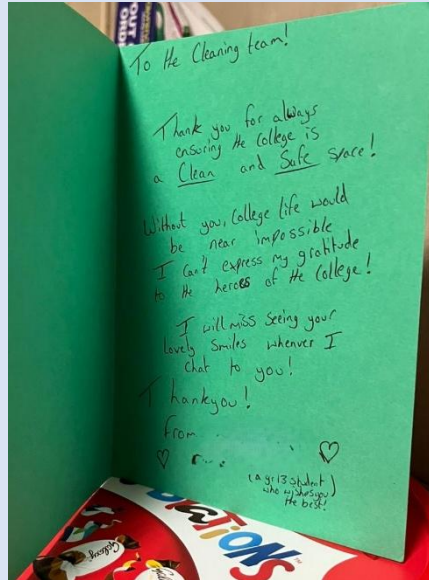 OUT
ORD
To the Cleaning team!
Thank you for always
ensuring the College is
a Clean and Safe space!
Without you, College life would
be near impossible
I can't express my gratitude
to the heroes of the College!
I will miss seeing your
lovely smiles whenever I
chat to you!
Thankyou!
From
(a yr 13 student
who wishes you
the best!)
Galaxy